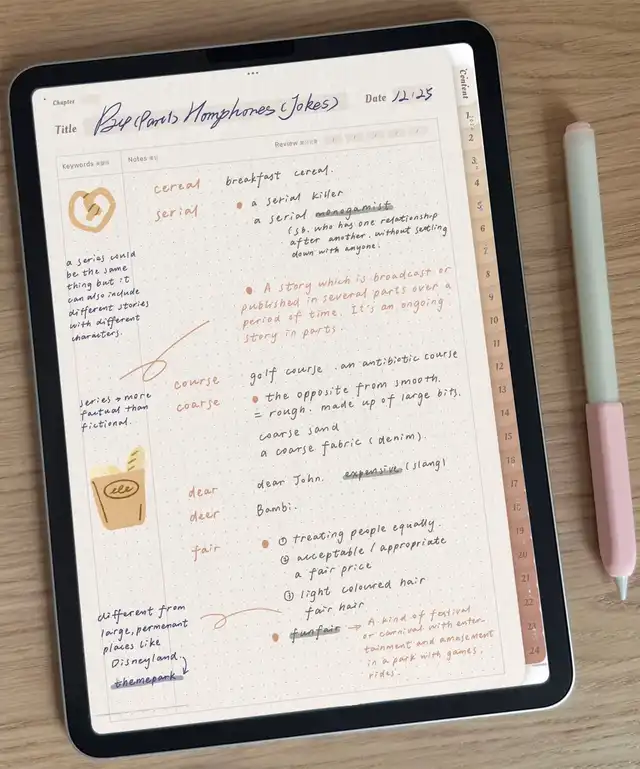 Chapter
Title
P24 (Part1) Homphones (Jokes)
Date 12/25
Content
Keywords
Notes
Review
cereal breakfast cereal.
serial • a serial killer
a serial monogamist
(sb. who has one relationship
after another. without settling
down with anyone.
a series could
be the same
thing but it
can also include
different stories
with different
characters.
• A story which is broadcast or
published in several parts over a
period of time. It's an ongoing
story in parts.
series → more
factual than
fictional.
course golf course. an antibiotic course
coarse • the opposite from smooth.
= rough. made up of large bits.
coarse sand
a coarse fabric (denim).
dear dear John. expensive (slang)
deer Bambi.
fair • ① treating people equally.
② acceptable / appropriate
a fair price
③ light coloured hair
fair hair
• funfair → A kind of festival
or carnival with enter-
tainment and amusement
in a park with games,
rides.
different from
large, permenant
places like
Disneyland.
themepark
1
2
3
4
5
6
7
8
9
10
11
12
13
14
15
16
17
18
19
20
21
22
23
24